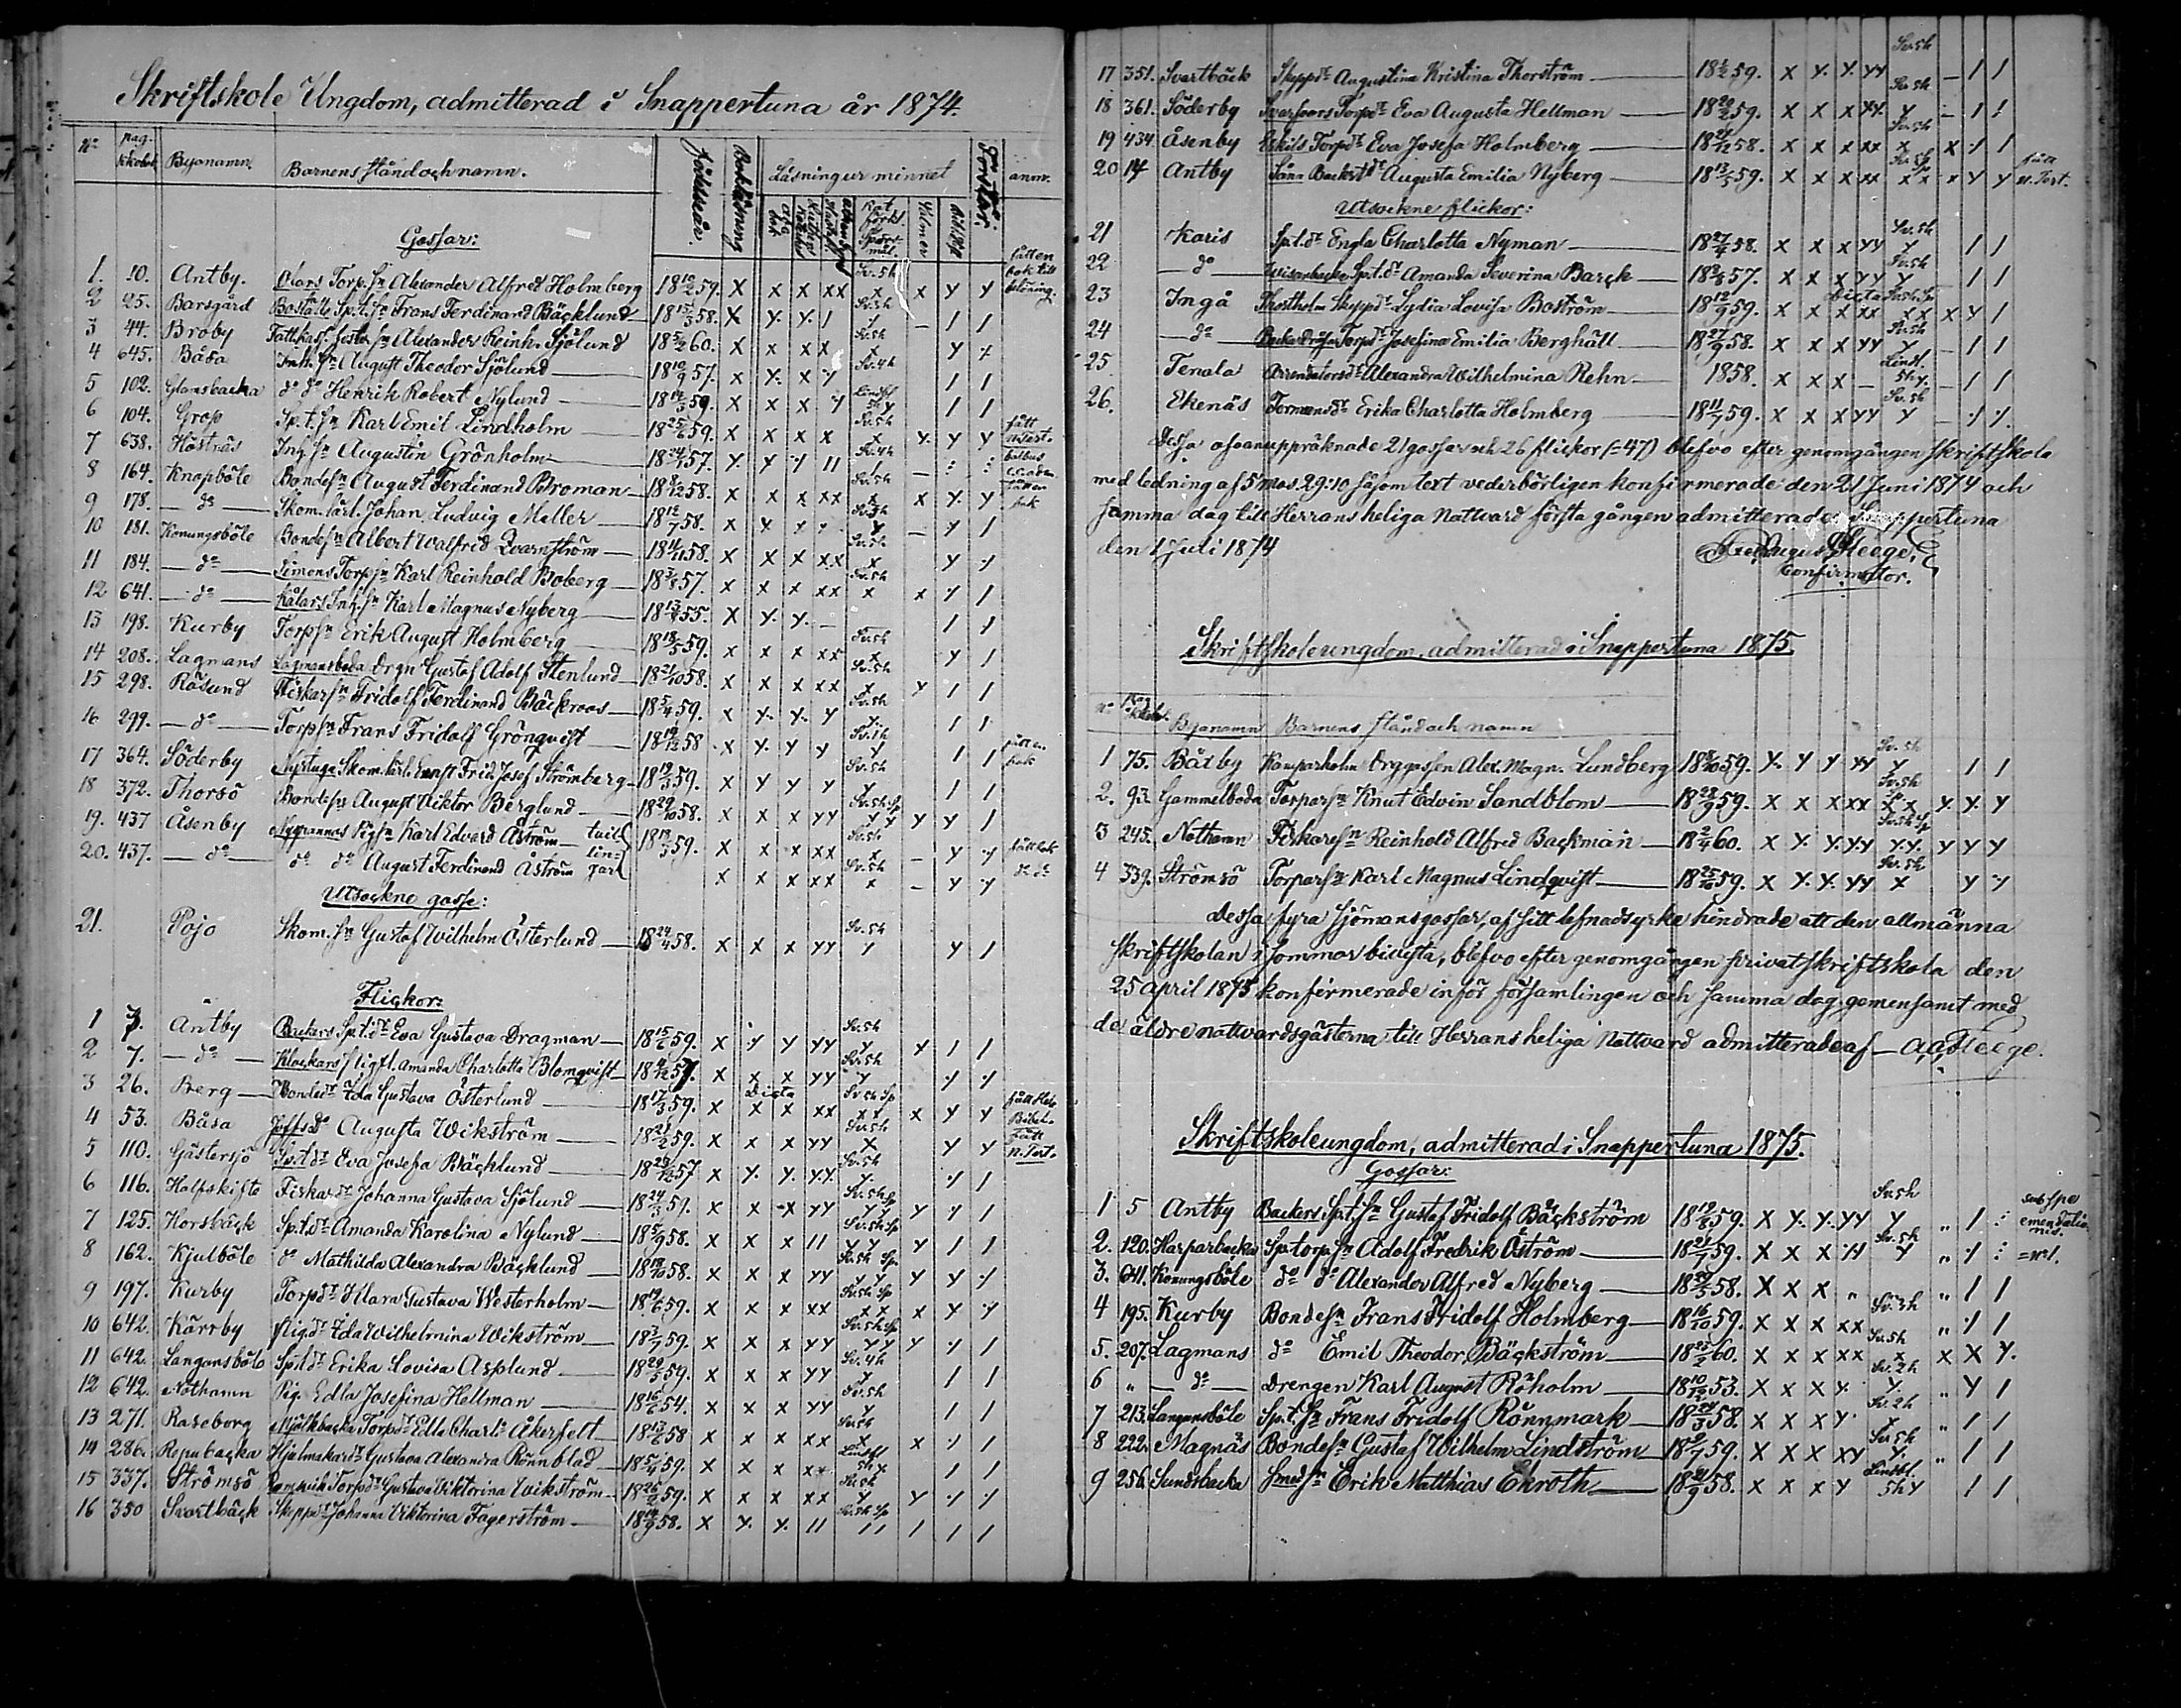 Skriftskole Ungdom, admitterad i Snappertuna år 1874.
No pag. Byanamn. Barnens stånd och namn. Födelseår. Läsning ur minnet Förstår: anm.
Gossar:
1. 10. Antby. Olars Torp. sn Alexander Alfred Holmberg 18 59. X X X XX Sv. sh x x y y fått en bok till belöning.
2 25. Barsgård Sp.t. sn Frans Ferdinand Bäcklund 18 15/3 58. X y. y. / Sv. sh / – / /
3 44. Broby Alexander Reinh. Sjölund 18 5/2 60. X X X X Sv. sh x y y
4 645. Båsa Inh. sn August Theodor Sjölund 18 10/9 57. X y. X y Sv. 4h / /
5 102. Glamsbacka do do Henrik Robert Nylund 18 14/3 59. X X X y Lindbl. sh y / /
6 104. Grop Sp.t. sn Karl Emil Lindholm 18 25/6 59. X X X X Sv. sh x y. y y fått n. test.
7 638. Höstnäs Inh. sn Augustin Grönholm 18 24/7 57. y. y y // Sv. 4h / –
8 164. Knapböle Bondesn August Ferdinand Broman 18 8/12 58. X X X XX Sv. sh x x y. y
9 178. do Skom. lärl. Johan Ludvig Meller 18 12/7 58. X X y y Sv. sh y – y /
10 181. Konungsböle Bondesn Albert Walfrid Qvarnström 18 4/11 58. X X X XX Sv. sh x y /
11 184. do Simons Torpsn Karl Reinhold Boberg 18 3/8 57. X X X XX Sv. sh x x y /
12 641. do Kålars Inh. sn Karl Magnus Nyberg 18 13/9 55. X y. y. – / /
13 198. Kurby Torpsn Erik August Holmberg 18 18/5 59. X X X XX Sv. sh x y /
14 208. Lagmans Lagmansboda Drgn Gustaf Adolf Stenlund 18 21/10 58. X X X XX Sv. sh x y / /
15 298. Räsund Fiskarsn Fridolf Ferdinand Bäckroos 18 5/4 59. X y. y. y Sv. sh y. / /
16 299. do Torpsn Frans Fridolf Grönqvist 18 19/12 58 X y. y y Sv. sh y / /
17 364. Söderby Nystuga Skom. lärl. Ernst Frid. Josef Strömberg 18 19/3 59. X y y y Sv. sh y / / fått en bok
18 372. Thorsö Bondesn August Viktor Berglund 18 29/10 58. X X X yy Sv. sh sp y y y y /
19. 437 Åsenby Nygrannas Pigsn Karl Edvard Åström tvil- 18 19/5 59. X X X XX Sv. sh x – y y
20. 437. do do do August Ferdinand Åström lingar X X X XX Sv. sh x – y y
Utsockne gosse:
21. Pojo Skom. sn Gustaf Wilhelm Österlund 18 24/4 58. X X X yy Sv. sh y y /
Flickor:
1 7. Antby Backers Sp.t. dr Eva Gustava Dragman 18 15/6 59. X y y yy Sv. sh y y / /
2 7. do Klockars Amanda Charlotta Blomqvist 18 57. X X X yy Sv. sh y y y
3 26. Berg Bondedr Ida Gustava Österlund 18 17/3 59. X X X XX Sv sh sp x x x y y
4 53. Båsa do Augusta Wikström 18 21/2 59. X X X yy Sv. sh x y y fått n. Test.
5 110. Gästersjö Sp.t. dr Eva Josefa Bäcklund 18 57 X y. y. y.y. Sv. sh y. y /
6 116. Halfskifte Fiskardr Johanna Gustava Sjölund 18 24/3 59. X X X yy Sv. sh sp y y y y /
7 125. Horsbäck Sp.t. dr Amanda Karolina Nylund 18 5/9 58. X X X // Sv. sh sp y y y / /
8 162. Kjulböle do Mathilda Alexandra Bäcklund 18 19/10 58. X X X yy Sv. sh sp y y y y y
9 197. Kurby Torpdr Klara Gustava Westerholm 18 19/6 59. X X X XX Sv. sh sp x x x y y
10 642. Kärrby Pigdr Ida Wilhelmina Wikström 18 3/7 59. X X X yy Sv. sh sp y y y y /
11 642. Langansböle Sp.t. dr Erika Lovisa Asplund 18 29/5 59. X X X yy Sv. 4h y / /
12 642. Nothamn Pig. Edla Josefina Hellman 18 16/6 54. X X X yy Sv. sh y / /
13 271. Raseborg Mjölkbacka Torpdr Edla Charl. Åkerfelt 18 13/6 58 X X X XX Sv. sh x x y /
14 286. Repubacka Hjulmakardr Gustava Alexandra Rönnblad 18 5/4 59. X X X XX Lindbl. sh x / /
15 337. Strömsö Torpdr Gustava Viktorina Wikström 18 26/2 59. X X X XX Sv. sh y y y y
16 350 Svartbäck Skeppsdr Johanna Viktorina Fagerström 18 14/9 58. X y. y. // Sv. sh sp // / / /
17 351. Svartbäck Skeppsdr Augustina Kristina Thorström 18 59. X y. y. yy Sv. sh – / /
18 361. Söderby Svarfvars Torpdr Eva Augusta Hellman 18 20/2 59. X X X yy. Sv. sh y – / /
19 434. Åsenby Eskils Torpdr Eva Josefa Holmberg 18 21/12 58. X X X XX Sv. sh x x y /
20 14 Antby Augusta Emilia Nyberg 18 13/5 59. X X X XX Sv. sh sp x x x y y fått n. Test.
Utsockne flickor:
21 Karis Sp.t. dr Engla Charlotta Nyman 18 27/4 58. X X X yy Sv. sh y / /
22 do Sp.t. dr Amanda Severina Barck 18 57. X X X yy Sv. sh y / /
23 Ingå Skeppsdr Lydia Lovisa Boström 18 12/9 59. X X X XX x x x y /
24 do Torpdr Josefina Emilia Berghäll 18 27/9 58. X X X yy Sv. sh y – / /
25. Tenala Arrendatorsdr Alexandra Wilhelmina Rehn 1858. X X X – Lindl. sh y. – / /
26. Ekenäs Formansdr Erika Charlotta Holmberg 18 11/7 59. X X X yy Sv. sh y – y y.
Dessa ofvanuppräknade 21 gossar och 26 flickor (=47) blefvo efter genomgången skriftskola
med ledning af 5 Mos. 29:10 såsom text vederbörligen konfirmerade den 21 Juni 1874 och
samma dag till Herrans heliga Nattvard första gången admitterade. Snappertuna
den 1 Juli 1874
Confirmator.
Skriftskoleungdom, admitterad i Snappertuna 1875.
No Byanamn Barnens stånd och namn
1 75. Båtby Kamparholm Alex. Magn. Lundberg 18 8/10 59. y. y y yy Sv. sh y / /
2. 93. Gammelboda Torparsn Knut Edvin Sandblom 18 28/9 59. X X X XX Sv. sh sp x x y. y. y
3 245. Nothamn Fiskaresn Reinhold Alfred Backman 18 2/4 60. X y. y. yy Sv. sh sp y.y. y y y
4 339. Strömsö Torparsn Karl Magnus Lindqvist 18 25/10 59. X y. y. yy Sv. sh x y y
Dessa fyra sjömansgossar, af sitt lefnadsyrke hindrade att den allmänna
skriftskolan i sommar bivista, blefvo efter genomgången privatskriftskola den
25 april 1875 konfirmerade inför församlingen och samma dag gemensamt med
de äldre nattvardsgästerna till Herrans heliga Nattvard admitterade af
Skriftskoleungdom, admitterad i Snappertuna 1875.
Gossar:
1 5 Antby Backers Sp.t. sn Gustaf Fridolf Bäckström 18 19/8 59. X y. y. yy Sv. sh y „ / : sub spe emendationis.
2. 120. Harparbacka Sp.torpsn Adolf Fredrik Öström 18 21/7 59. X X X // Sv. sh y „ y : = no 1.
3. 641. Konungsböle do do Alexander Alfred Nyberg 18 29/5 58. X X X „ „ / /
4 195. Kurby Bondesn Frans Fridolf Holmberg 18 16/10 59. X X X XX Sv. sh „ y /
5. 207. Lagmans do Emil Theodor Bäckström 18 25/2 60. X X X XX Sv. sh x x X y.
6 „ do Drengen Karl August Röholm 18 10/12 53. X X X y. Sv. 2h y. „ y /
7 213. Langansböle Sp.t. sn Frans Fridolf Rönnmark 18 24/3 58. X X X y. Sv. 2h x „ / /
8 222. Magnäs Bondesn Gustaf Wilhelm Lindström 18 2/7 59. X X X XY Sv. sh y. „ / /
9 256. Sundsbacka Smedsn Erik Matthias Ekroth 18 21/9 58. X X X y Lindbl. sh y / /